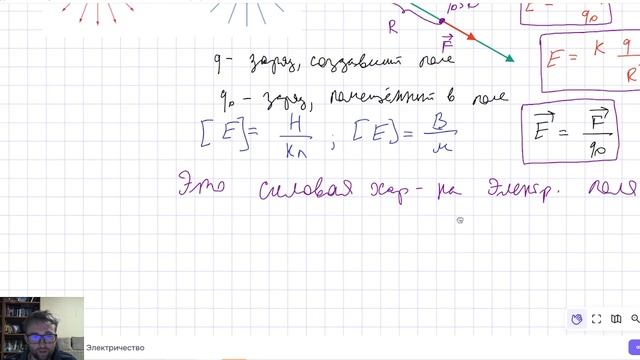 R
F
E =
q₀
E = K q
R
q - заряд, создавший поле
q₀ - заряд, помещённый в поле
[E] = Н/Кл ; [E] = В/м
E = F/q₀
Это силовая хар-ка электр. поля
Электричество